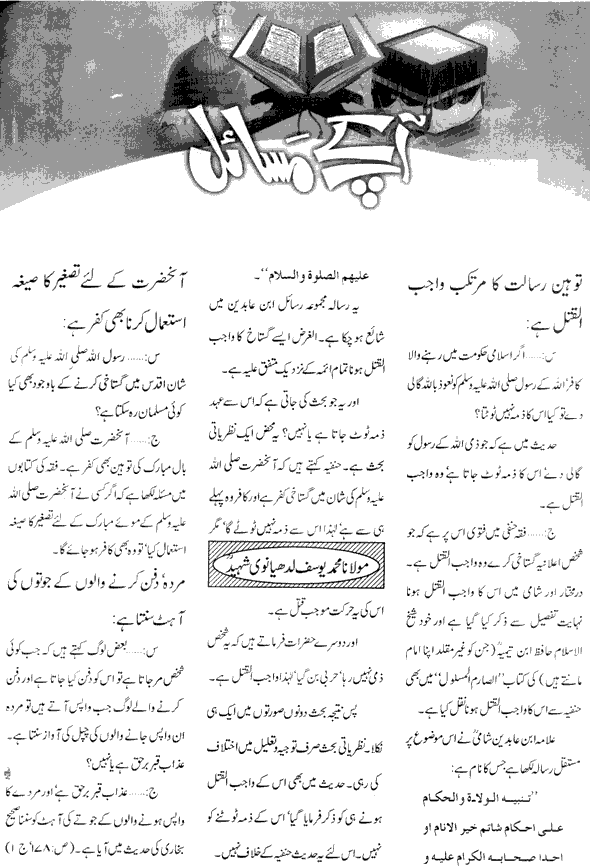 آپ کے مسائل
توہین رسالت کا مرتکب واجب
القتل ہے:
س:...... اگر اسلامی حکومت میں رہنے والا
کافر اللہ کے رسول صلی اللہ علیہ وسلم کو نعوذ باللہ گالی
دے تو کیا اس کا ذمہ نہیں ٹوٹتا؟
حدیث میں ہے کہ جو ذمی اللہ کے رسول کو
گالی دے اس کا ذمہ ٹوٹ جاتا ہے وہ واجب
القتل ہے۔
ج:...... فقہ حنفی میں فتویٰ اس پر ہے کہ جو
شخص اعلانیہ گستاخی کرے وہ واجب القتل ہے۔
درمختار اور شامی میں اس کا واجب القتل ہونا
نہایت تفصیل سے ذکر کیا گیا ہے اور خود شیخ
الاسلام حافظ ابن تیمیہؒ (جن کو غیر مقلد اپنا امام
مانتے ہیں) کی کتاب ’’الصارم المسلول‘‘ میں بھی
حنفیہ سے اس کا واجب القتل ہونا نقل کیا ہے۔
علامہ ابن عابدین شامیؒ نے اس موضوع پر
مستقل رسالہ لکھا ہے جس کا نام ہے:
’’تنبیہ الولاۃ والحکام
علی احکام شاتم خیر الانام او
احد اصحابہ الکرام علیہ و
علیہم الصلوۃ والسلام‘‘۔
یہ رسالہ مجموعہ رسائل ابن عابدین میں
شائع ہوچکا ہے۔ الغرض ایسے گستاخ کا واجب
القتل ہونا تمام ائمہ کے نزدیک متفق علیہ ہے۔
اور یہ جو بحث کی جاتی ہے کہ اس سے عہد
ذمہ ٹوٹ جاتا ہے یا نہیں؟ یہ محض ایک نظریاتی
بحث ہے۔ حنفیہ کہتے ہیں کہ آنحضرت صلی اللہ
علیہ وسلم کی شان میں گستاخی کفر ہے اور کافر وہ پہلے
ہی سے ہے لہٰذا اس سے ذمہ نہیں ٹوٹے گا‘ مگر
مولانا محمد یوسف لدھیانوی شہیدؒ
اس کی یہ حرکت موجب قتل ہے۔
اور دوسرے حضرات فرماتے ہیں کہ یہ شخص
ذمی نہیں رہا‘ حربی بن گیا‘ لہٰذا واجب القتل ہے۔
پس نتیجہ بحث دونوں صورتوں میں ایک ہی
نکلا۔ نظریاتی بحث صرف توجیہ و تعلیل میں اختلاف
کی رہی۔ حدیث میں بھی اس کے واجب القتل
ہونے ہی کو ذکر فرمایا گیا‘ اس کے ذمہ ٹوٹنے کو
نہیں۔ اس لئے یہ حدیث حنفیہ کے خلاف نہیں۔
آنحضرت کے لئے تصغیر کا صیغہ
استعمال کرنا بھی کفر ہے:
س:...... رسول اللہ صلی اللہ علیہ وسلم کی
شان اقدس میں گستاخی کرنے کے باوجود بھی کیا
کوئی مسلمان رہ سکتا ہے؟
ج:...... آنحضرت صلی اللہ علیہ وسلم کے
بال مبارک کی توہین بھی کفر ہے۔ فقہ کی کتابوں
میں مسئلہ لکھا ہے کہ اگر کسی نے آنحضرت صلی اللہ
علیہ وسلم کے موئے مبارک کے لئے تصغیر کا صیغہ
استعمال کیا‘ تو وہ بھی کافر ہوجائے گا۔
مردہ‘ دفن کرنے والوں کے جوتوں کی
آہٹ سنتا ہے:
س:...... بعض لوگ کہتے ہیں کہ جب کوئی
شخص مرجاتا ہے تو اس کو دفن کیا جاتا ہے اور دفن
کرنے والے لوگ جب واپس آتے ہیں تو مردہ
ان واپس جانے والوں کی چپل کی آواز سنتا ہے۔
عذاب قبر برحق ہے یا نہیں؟
ج:...... عذاب قبر برحق ہے‘ اور مردے کا
واپس ہونے والوں کے جوتے کی آہٹ کو سننا صحیح
بخاری کی حدیث میں آیا ہے۔ (ص:۱۷۸‘ ج ۱)